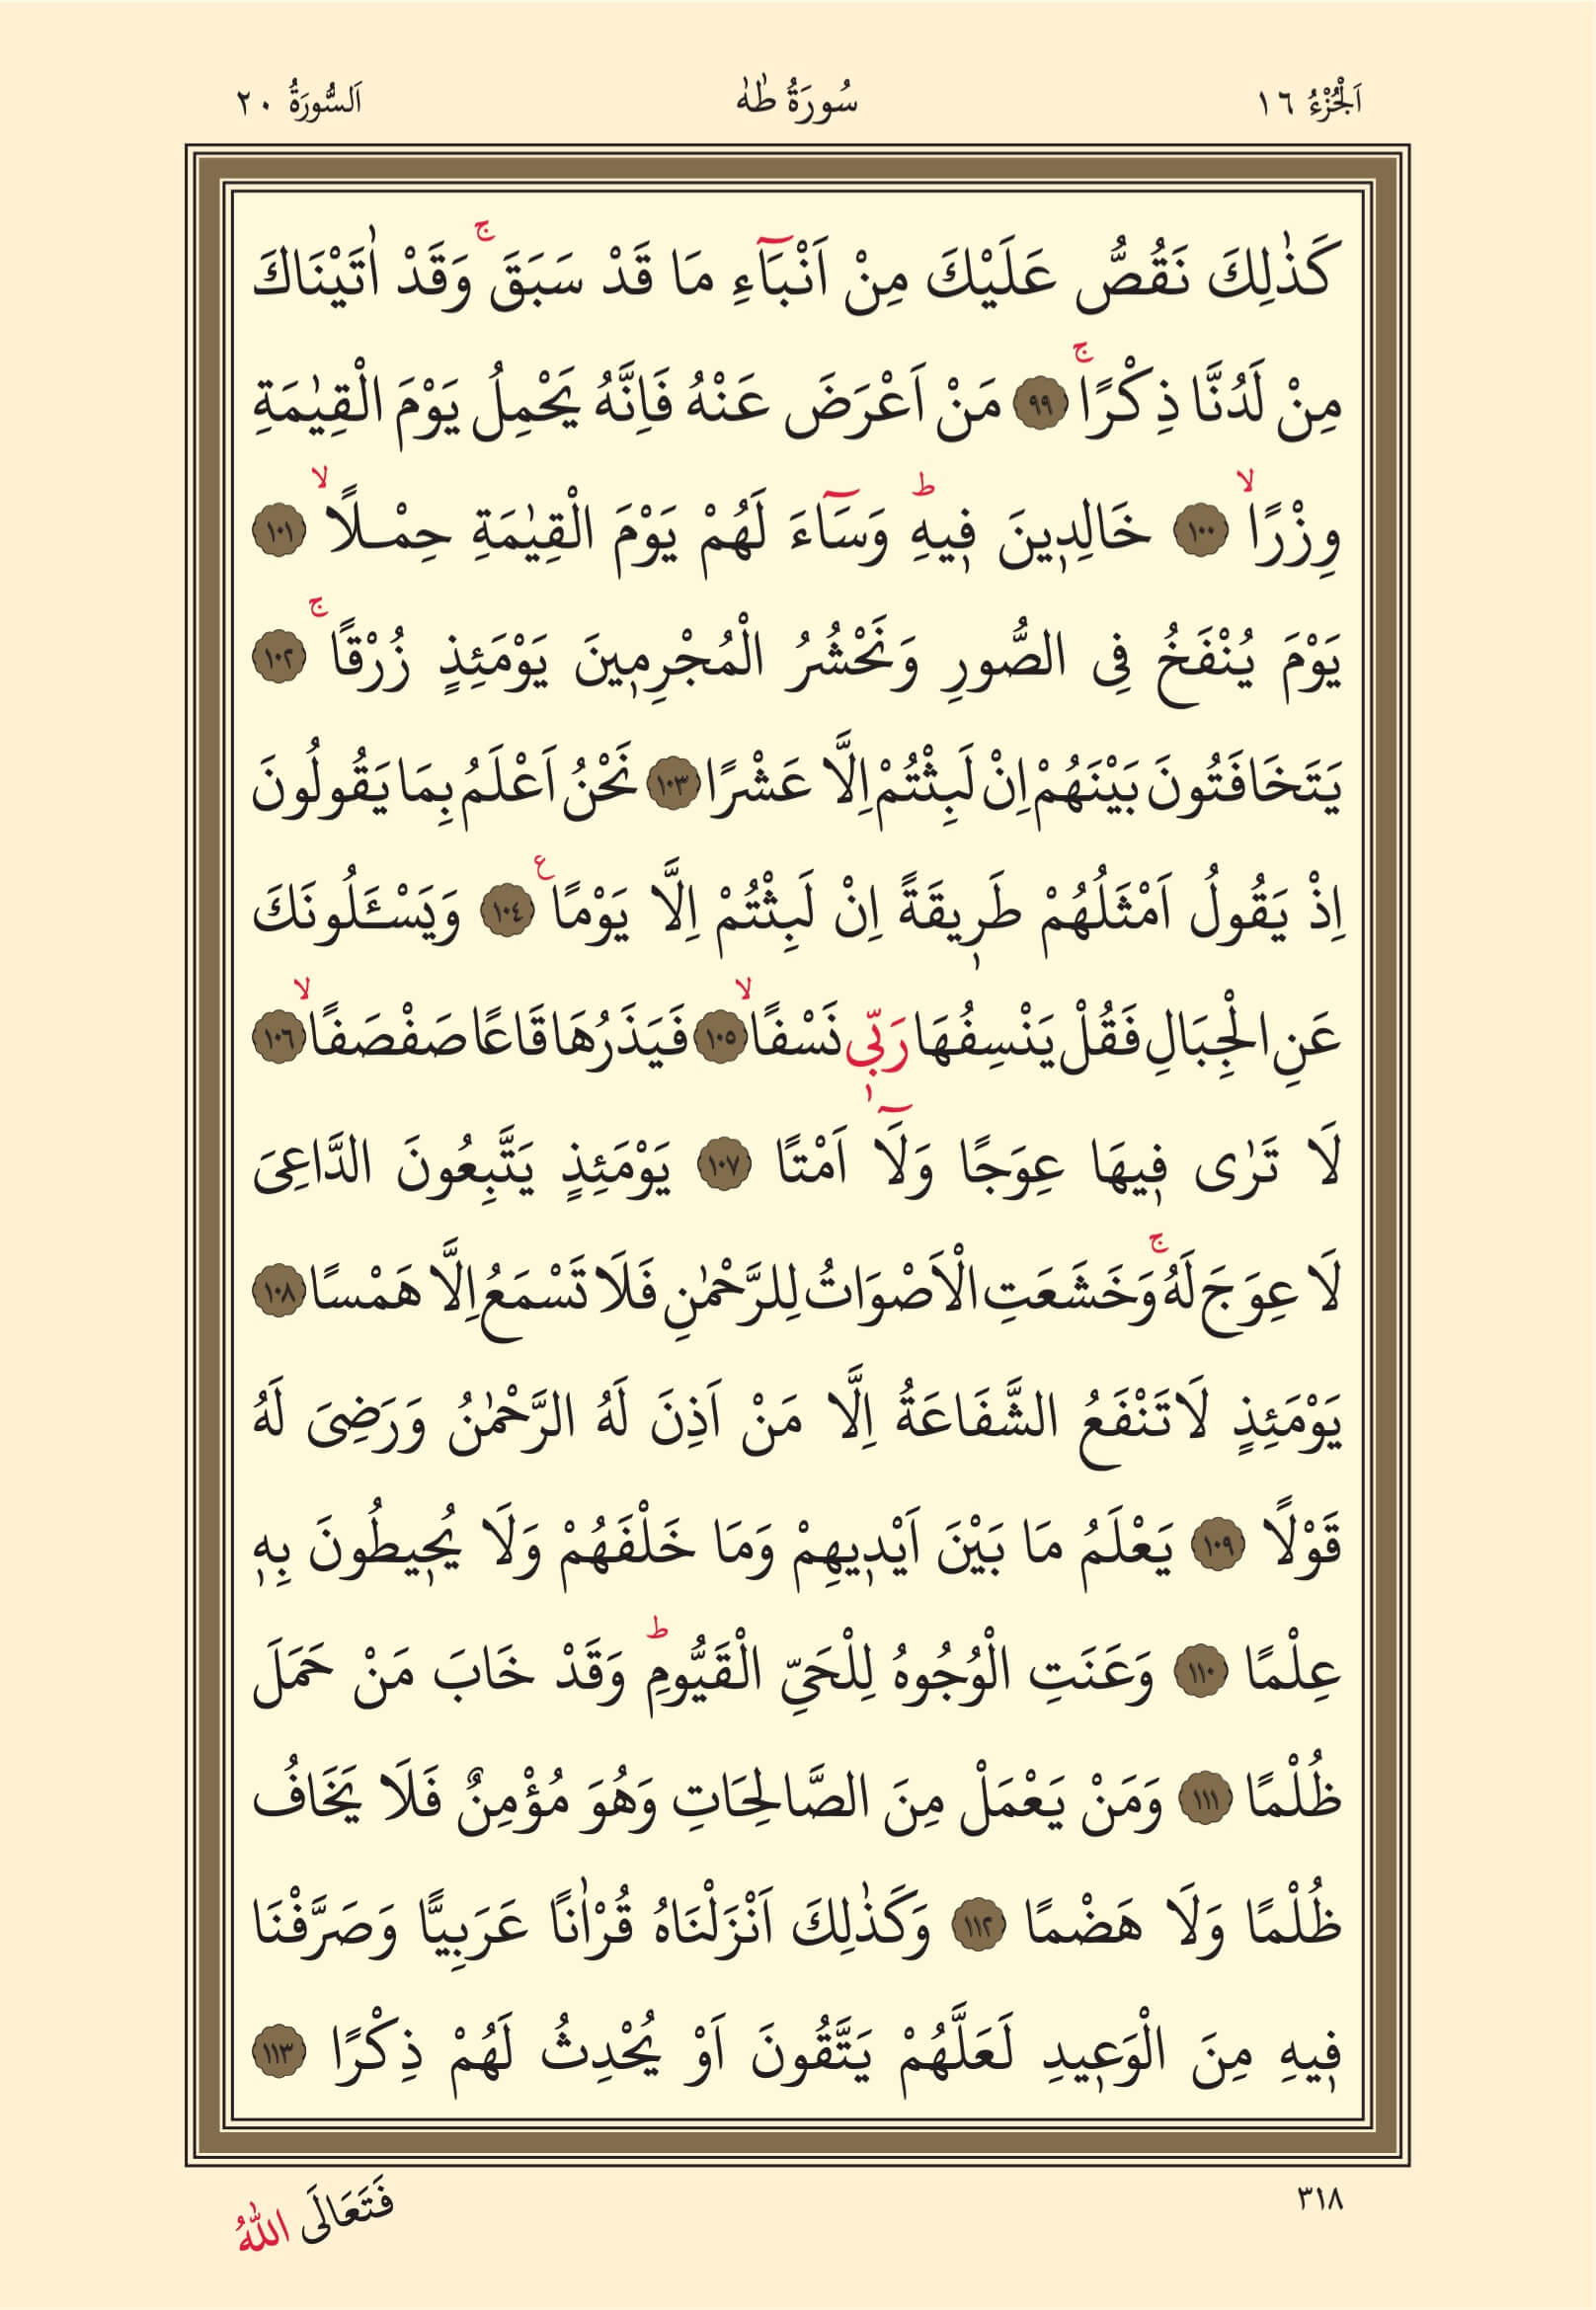 اَلْجُزْءُ ١٦
سُورَةُ طٰهٰ
اَلسُّورَةُ ٢٠
كَذٰلِكَ نَقُصُّ عَلَيْكَ مِنْ اَنْبَٓاءِ مَا قَدْ سَبَقَۚ وَقَدْ اٰتَيْنَاكَ
مِنْ لَدُنَّا ذِكْرًاۚ ﴿٩٩﴾ مَنْ اَعْرَضَ عَنْهُ فَاِنَّهُ يَحْمِلُ يَوْمَ الْقِيٰمَةِ
وِزْرًاۙ ﴿١٠٠﴾ خَالِدٖينَ فٖيهِؕ وَسَٓاءَ لَهُمْ يَوْمَ الْقِيٰمَةِ حِمْـلًاۙ ﴿١٠١﴾
يَوْمَ يُنْفَخُ فِى الصُّورِ وَنَحْشُرُ الْمُجْرِمٖينَ يَوْمَئِذٍ زُرْقًاۚ ﴿١٠٢﴾
يَتَخَافَتُونَ بَيْنَهُمْ اِنْ لَبِثْتُمْ اِلَّا عَشْرًا ﴿١٠٣﴾ نَحْنُ اَعْلَمُ بِمَا يَقُولُونَ
اِذْ يَقُولُ اَمْثَلُهُمْ طَرٖيقَةً اِنْ لَبِثْتُمْ اِلَّا يَوْمًا ع ﴿١٠٤﴾ وَيَسْـَٔلُونَكَ
عَنِ الْجِبَالِ فَقُلْ يَنْسِفُهَا رَبّٖى نَسْفًاۙ ﴿١٠٥﴾ فَيَذَرُهَا قَاعًا صَفْصَفًاۙ ﴿١٠٦﴾
لَا تَرٰى فٖيهَا عِوَجًا وَلَٓا اَمْتًا ﴿١٠٧﴾ يَوْمَئِذٍ يَتَّبِعُونَ الدَّاعِىَ
لَا عِوَجَ لَهُۚ وَخَشَعَتِ الْاَصْوَاتُ لِلرَّحْمٰنِ فَلَا تَسْمَعُ اِلَّا هَمْسًا ﴿١٠٨﴾
يَوْمَئِذٍ لَا تَنْفَعُ الشَّفَاعَةُ اِلَّا مَنْ اَذِنَ لَهُ الرَّحْمٰنُ وَرَضِىَ لَهُ
قَوْلًا ﴿١٠٩﴾ يَعْلَمُ مَا بَيْنَ اَيْدٖيهِمْ وَمَا خَلْفَهُمْ وَلَا يُحٖيطُونَ بِهٖ
عِلْمًا ﴿١١٠﴾ وَعَنَتِ الْوُجُوهُ لِلْحَىِّ الْقَيُّومِؕ وَقَدْ خَابَ مَنْ حَمَلَ
ظُلْمًا ﴿١١١﴾ وَمَنْ يَعْمَلْ مِنَ الصَّالِحَاتِ وَهُوَ مُؤْمِنٌ فَلَا يَخَافُ
ظُلْمًا وَلَا هَضْمًا ﴿١١٢﴾ وَكَذٰلِكَ اَنْزَلْنَاهُ قُرْاٰنًا عَرَبِيًّا وَصَرَّفْنَا
فٖيهِ مِنَ الْوَعٖيدِ لَعَلَّهُمْ يَتَّقُونَ اَوْ يُحْدِثُ لَهُمْ ذِكْرًا ﴿١١٣﴾
٣١٨
فَتَعَالَى اللّٰهُ